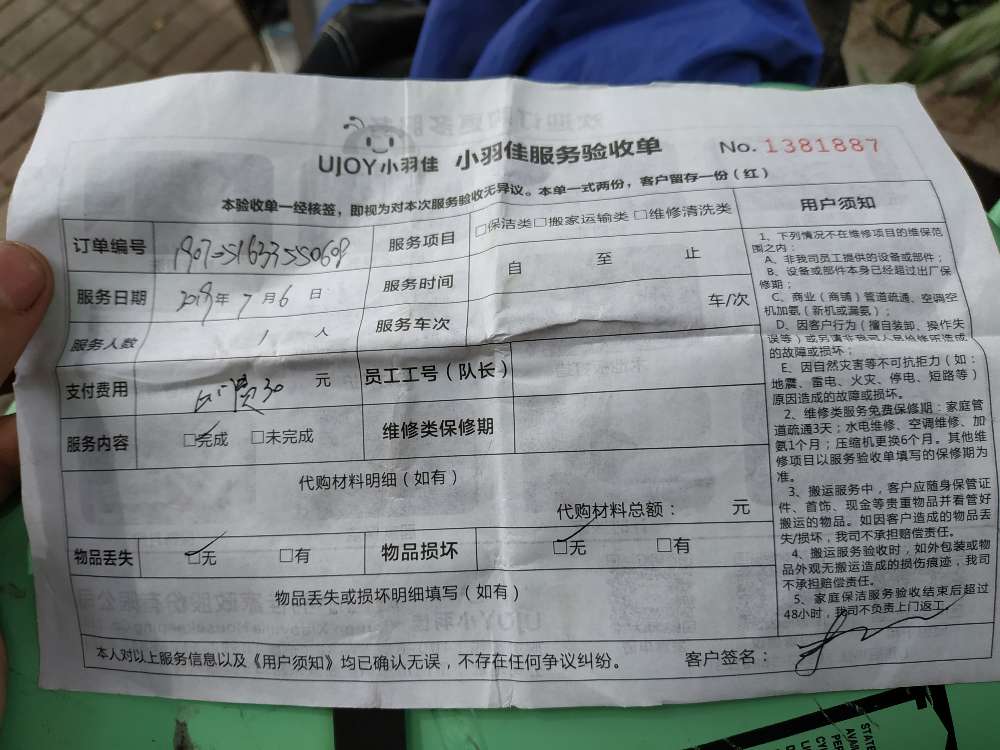 UJOY小羽佳 小羽佳服务验收单 No. 1381887
本验收单一经核签，即视为对本次服务验收无异议。本单一式两份，客户留存一份（红）
订单编号 服务项目 □保洁类□搬家运输类□维修清洗类
服务日期 2019年 7 月 6 日 服务时间 自 至 止
服务人数 1 人 服务车次 车/次
支付费用 元 员工工号（队长）
服务内容 □完成 □未完成 维修类保修期
代购材料明细（如有）
代购材料总额： 元
物品丢失 □无 □有 物品损坏 □无 □有
物品丢失或损坏明细填写（如有）
本人对以上服务信息以及《用户须知》均已确认无误，不存在任何争议纠纷。 客户签名：
用户须知
1、下列情况不在维修项目的维保范
围之内：
A、非我司员工提供的设备或部件；
B、设备或部件本身已经超过出厂保
修期；
C、商业（商铺）管道疏通、空调空
机加氨（新机或漏氨）；
D、因客户行为（擅自装卸、操作失
误等）或另请非我司人员维修所造成
的故障或损坏；
E、因自然灾害等不可抗拒力（如：
地震、雷电、火灾、停电、短路等）
原因造成的故障或损坏。
2、维修类服务免费保修期：家庭管
道疏通3天；水电维修、空调维修、加
氨1个月；压缩机更换6个月。其他维
修项目以服务验收单填写的保修期为
准。
3、搬运服务中，客户应随身保管证
件、首饰、现金等贵重物品并看管好
搬运的物品。如因客户造成的物品丢
失/损坏，我司不承担赔偿责任。
4、搬运服务验收时，如外包装或物
品外观无搬运造成的损伤痕迹，我司
不承担赔偿责任。
5、家庭保洁服务验收结束后超过
48小时，我司不负责上门返工。